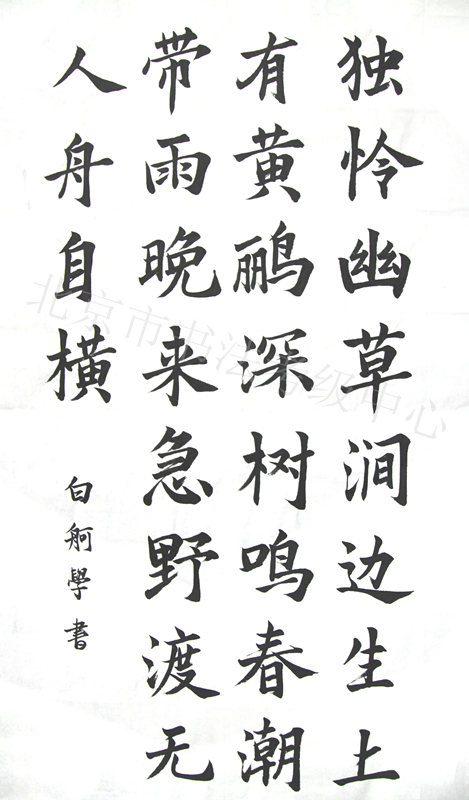 独怜幽草涧边生上
有黄鹂深树鸣春潮
带雨晚来急野渡无
人舟自横
白舸學書
北京市书法考级中心